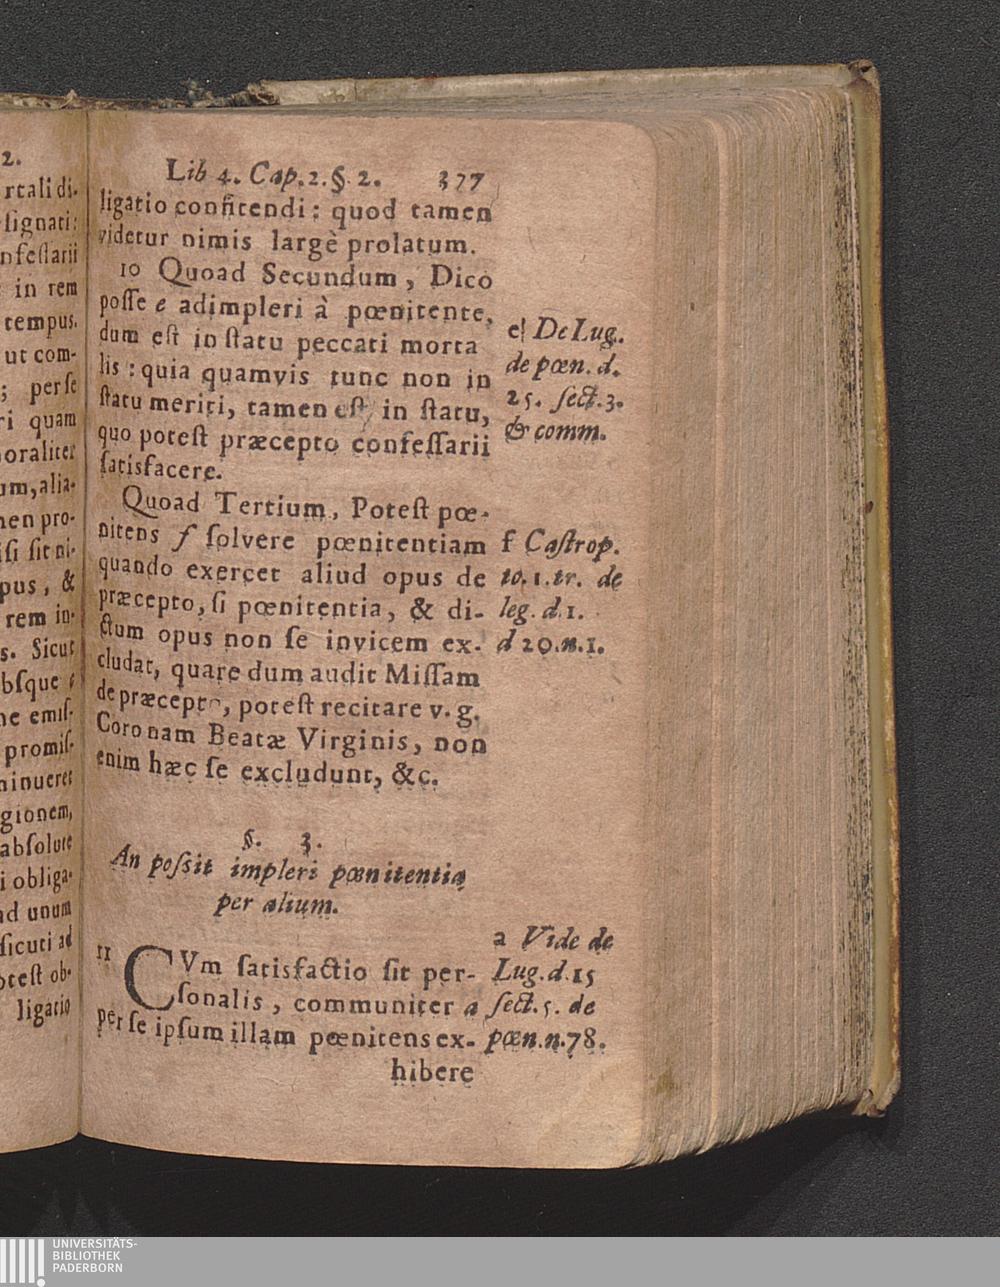 2.
rtali di-
signati:
nfessarii
in rem
tempus.
ut com-
; per se
ri quam
oraliter
um, alia-
nen pro-
isi sit ni-
pus, &
rem in-
s. Sicut
bsque
ne emis-
promis-
minueret
gionem,
absolute
i obliga-
ad unum
sicuti ad
otest ob-
ligatio
Lib 4. Cap. 2. §. 2. 377
ligatio confitendi: quod tamen
videtur nimis largè prolatum.
10 Quoad Secundum, Dico
posse e adimpleri à pœnitente,
dum est in statu peccati morta
lis: quia quamvis tunc non in
statu meriti, tamen est in statu,
quo potest præcepto confessarii
satisfacere.
Quoad Tertium, Potest pœ-
nitens f solvere pœnitentiam
quando exercet aliud opus de
præcepto, si pœnitentia, & di-
ctum opus non se invicem ex-
cludat, quare dum audit Missam
de præcepto, potest recitare v. g.
Coronam Beatæ Virginis, non
enim hæc se excludunt, &c.
e De Lug.
de pœn. d.
25. sect. 3.
& comm.
f Castrop.
to. 1. tr. de
leg. d. 1.
d 20. n. 1.
§. 3.
An possit impleri pœnitentia
per alium.
11 CVm satisfactio sit per-
sonalis, communiter a
per se ipsum illam pœnitens ex-
hibere
a Vide de
Lug. d. 15
sect. 5. de
pœn. n. 78.
UNIVERSITÄTS-
BIBLIOTHEK
PADERBORN